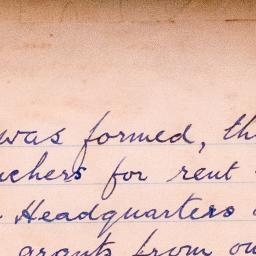 was formed, th
uchers for rent
Headquarters
grants from ou